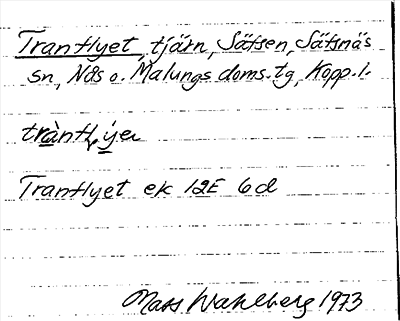 Tranflyet, tjärn, Säfsen, Säfsnäs
sn, Nås o. Malungs doms.tg, Kopp. l.
Tranflyet ek 12E 6d
Mats Wahlberg 1973